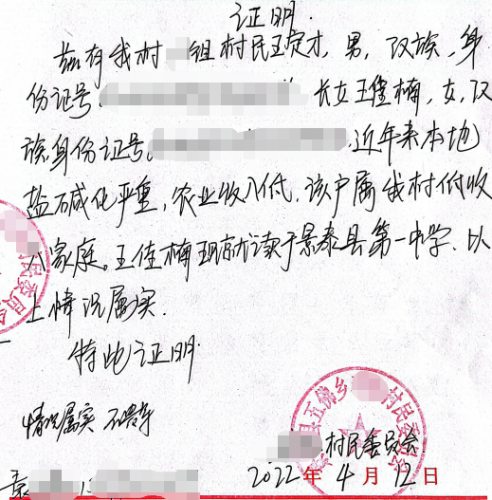 证明.
兹有我村 组村民王定才,男,汉族,身
份证号 长女王佳楠,女,汉
族,身份证号, 近年来本地
盐碱化严重,农业收入低.该户属我村低收
入家庭。王佳楠现就读于景泰县第一中学.以
上情况属实.
特此证明
情况属实
村民委员会
2022年4月12日
县五佛乡 村民委员会
村民委员会